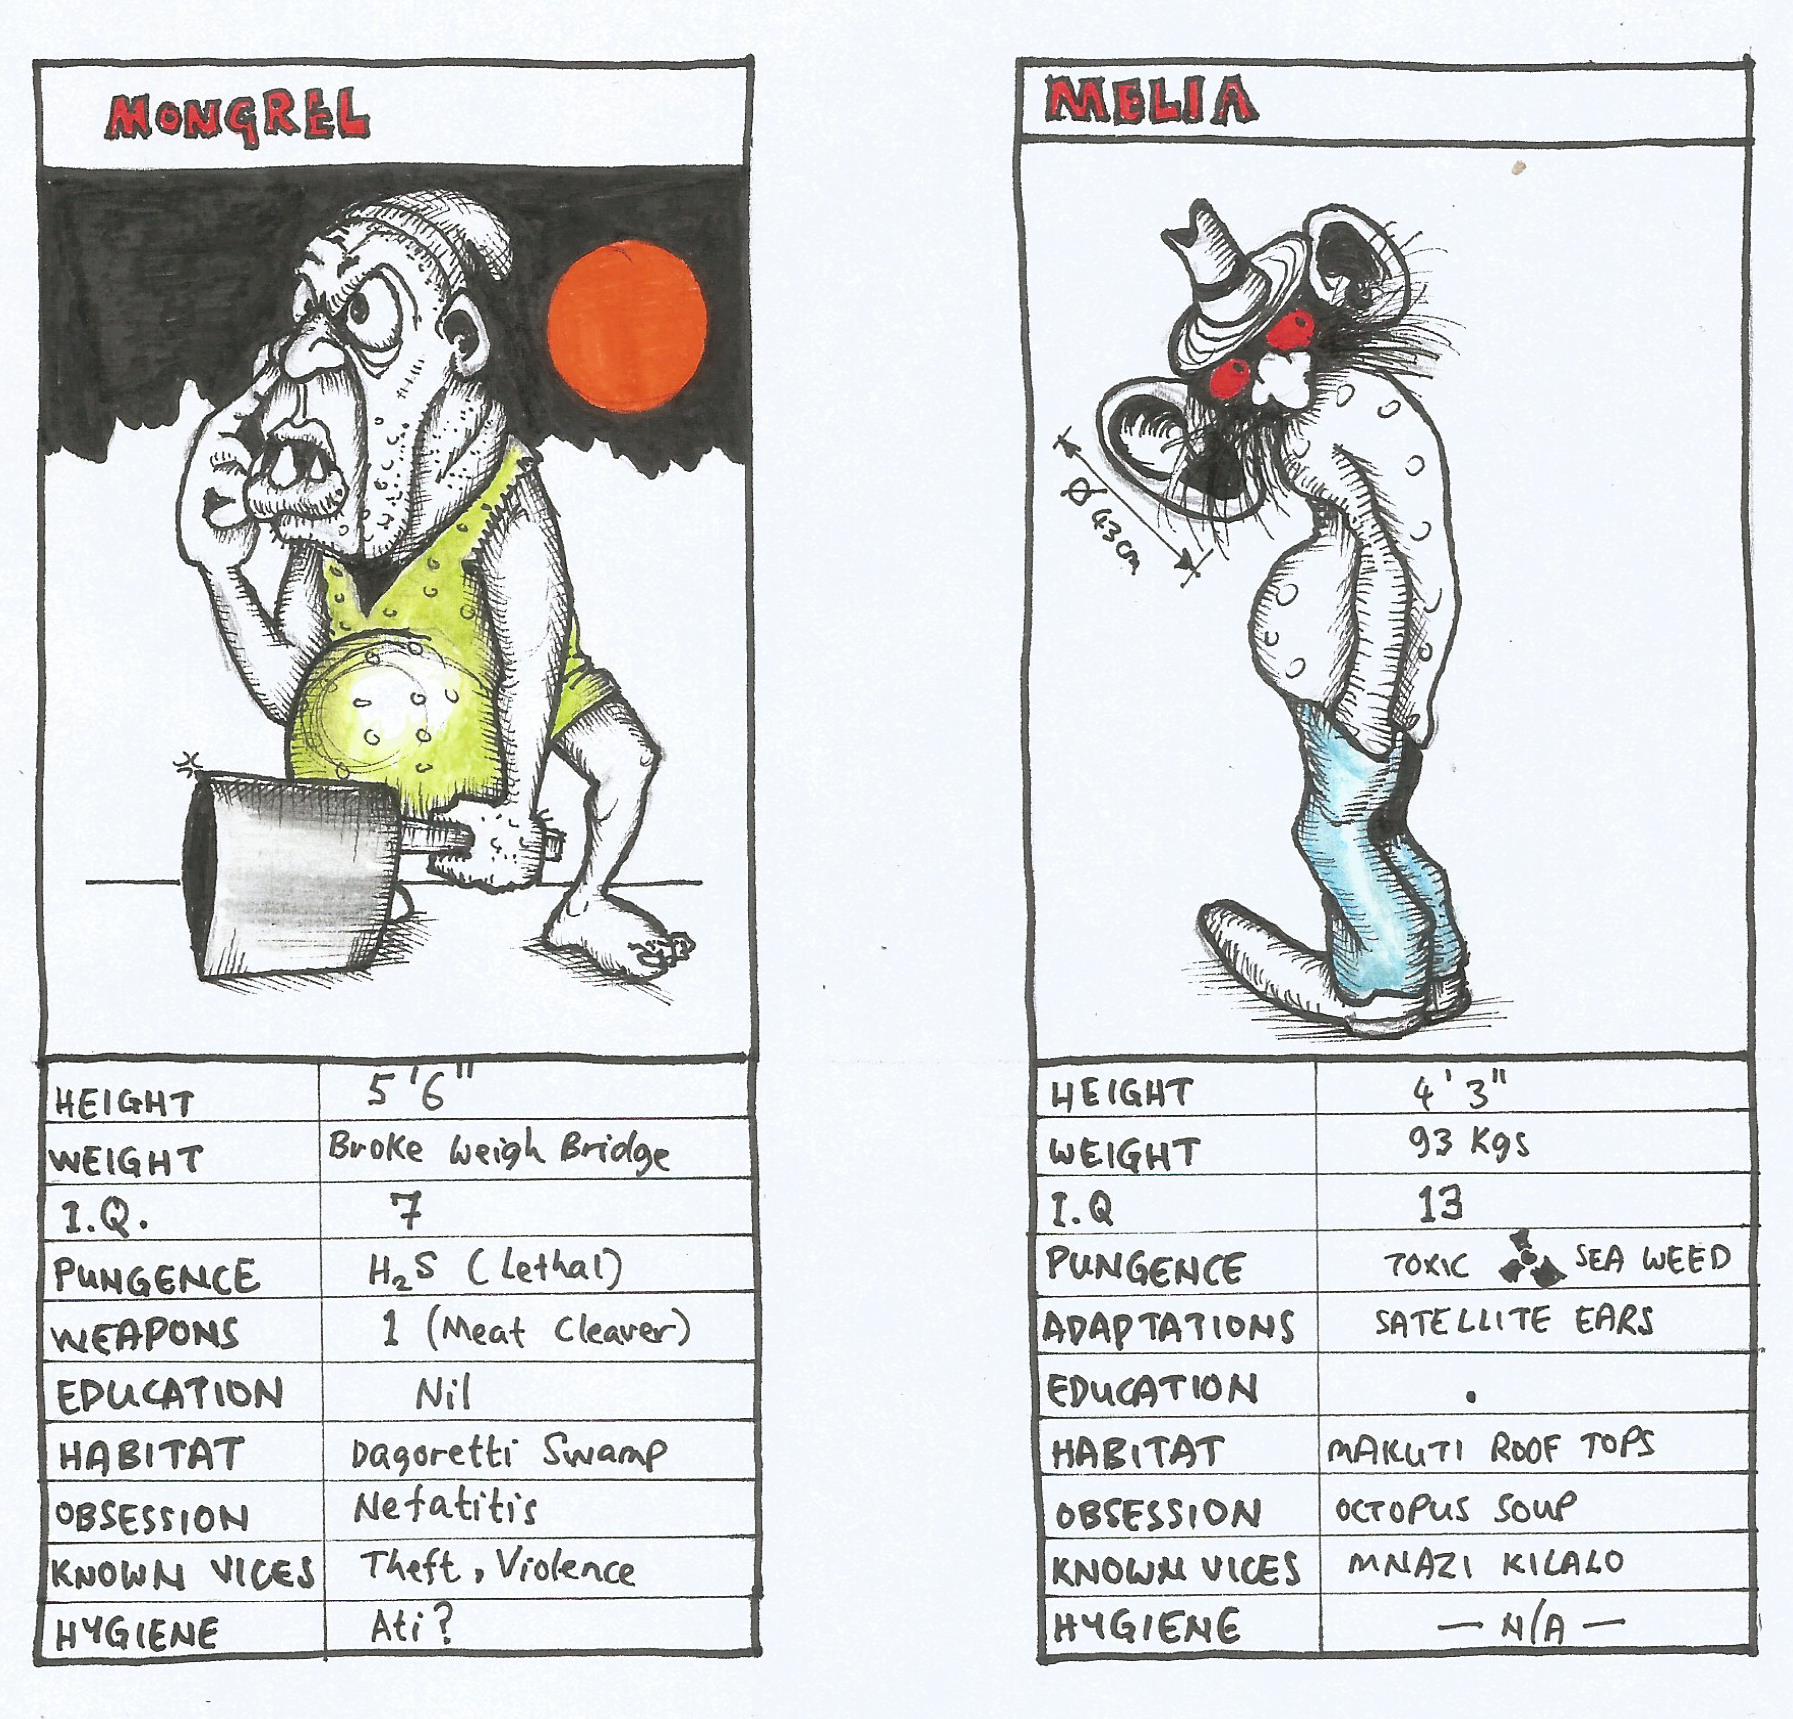 MONGREL
HEIGHT 5'6"
WEIGHT Broke Weigh Bridge
I.Q. 7
PUNGENCE H₂S (Lethal)
WEAPONS 1 (Meat Cleaver)
EDUCATION Nil
HABITAT Dagoretti Swamp
OBSESSION Nefatitis
KNOWN VICES Theft, Violence
HYGIENE Ati?
MELIA
Ø 43cm
HEIGHT 4'3"
WEIGHT 93 Kgs
I.Q 13
PUNGENCE TOXIC SEA WEED
ADAPTATIONS SATELLITE EARS
EDUCATION .
HABITAT MAKUTI ROOF TOPS
OBSESSION OCTOPUS SOUP
KNOWN VICES MNAZI KILALO
HYGIENE — N/A —